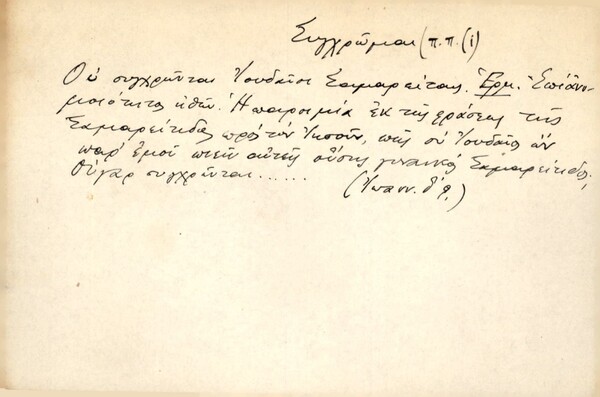 Συγχρῶμαι (π.π. (i)
Οὐ συγχρῶνται Ἰουδαῖοι Σαμαρείταις. Ἑρμ. Ἐπὶ ἀνο-
μοιότητα ἠθῶν. Ἡ παροιμία ἐκ τῆς φράσεως τῆς
Σαμαρείτιδος πρὸς τὸν Ἰησοῦν, πῶς σὺ Ἰουδαῖος ὢν
παρ' ἐμοῦ πιεῖν αἰτεῖς οὔσης γυναικὸς Σαμαρείτιδος;
Οὐ γὰρ συγχρῶνται...... (Ἰωανν. δ' 9)